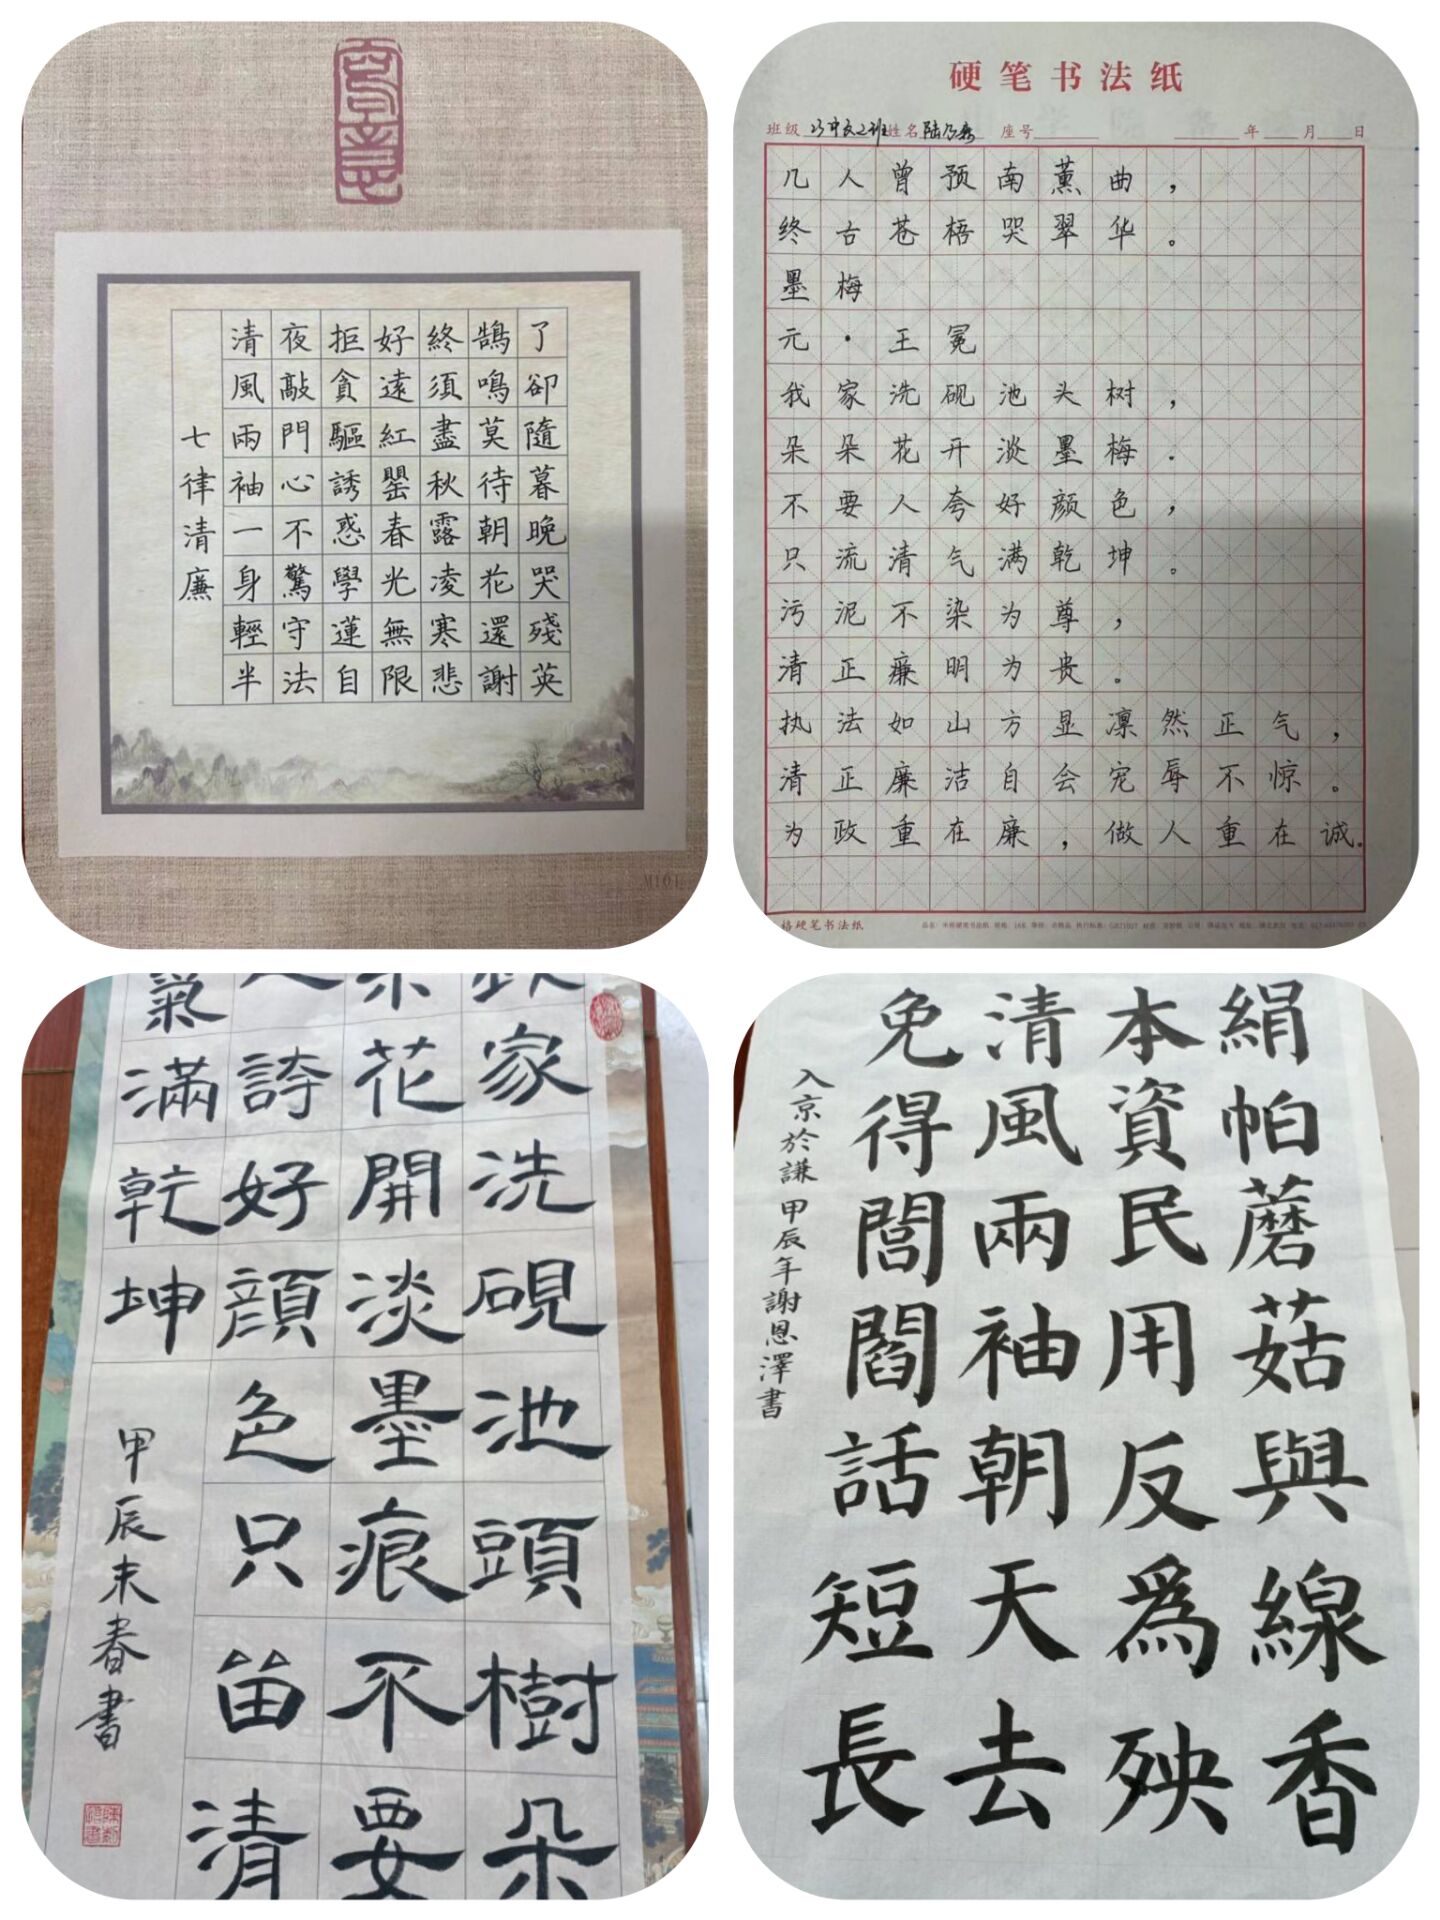 七律清廉
清風兩袖一身輕半
夜敲門心不驚守法
拒貪驅誘惑學蓮自
好遠紅罌春光無限
終須盡秋露凌寒悲
鵠鳴莫待朝花還謝
了卻隨暮晚哭殘英
M101
硬笔书法纸
班级 23中文2班 姓名 陆 座号 年 月 日
几人曾预南薰曲，
终古苍梧哭翠华。
墨梅
元·王冕
我家洗砚池头树，
朵朵花开淡墨梅.
不要人夸好颜色，
只流清气满乾坤。
污泥不染为尊，
清正廉明为贵。
执法如山方显凛然正气，
清正廉洁自会宠辱不惊。
为政重在廉，做人重在诚.
格硬笔书法纸
家洗硯池頭樹朵
朵花開淡墨痕不要
人誇好顏色只畄清
氣滿乾坤
甲辰末春書
絹帕蘑菇與線香
本資民用反爲殃
清風兩袖朝天去
免得閭閻話短長
入京於謙甲辰年謝恩澤書